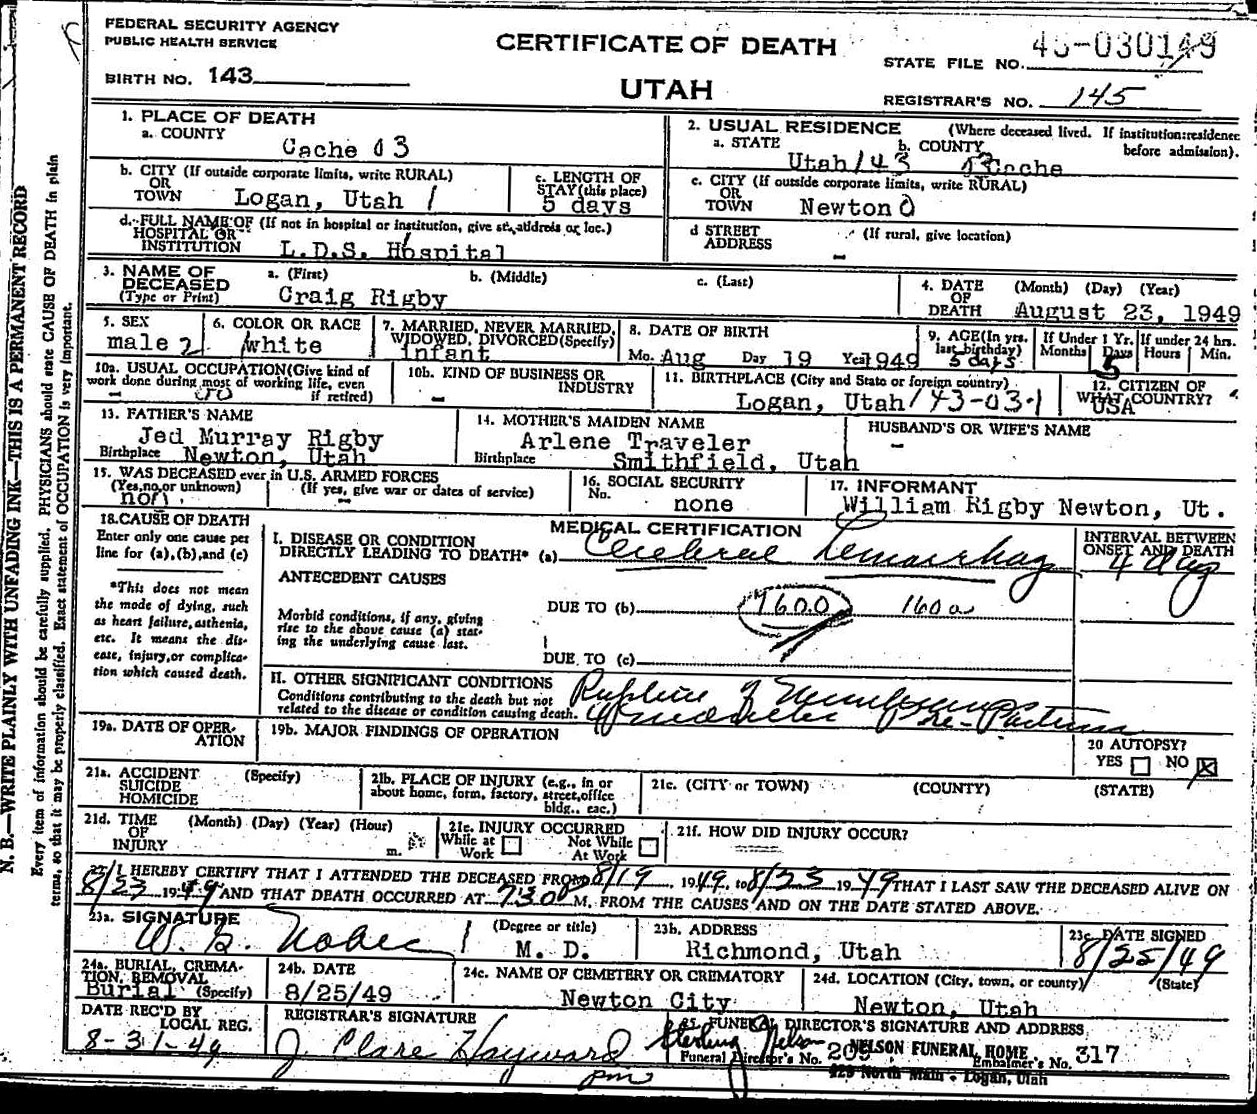 FEDERAL SECURITY AGENCY
PUBLIC HEALTH SERVICE
BIRTH NO. 143
CERTIFICATE OF DEATH
UTAH
STATE FILE NO.
REGISTRAR'S NO. 145
N. B.—WRITE PLAINLY WITH UNFADING INK—THIS IS A PERMANENT RECORD
Every item of information should be carefully supplied. PHYSICIANS should state CAUSE OF DEATH in plain
terms, so that it may be properly classified. Exact statement of OCCUPATION is very important.
1. PLACE OF DEATH
a. COUNTY
Cache 03
2. USUAL RESIDENCE (Where deceased lived. If institution:residence
before admission).
a. STATE b. COUNTY
Utah/43 Cache
b. CITY (If outside corporate limits, write RURAL)
OR
TOWN Logan, Utah /
c. LENGTH OF
STAY (this place)
5 days
c. CITY (If outside corporate limits, write RURAL)
OR
TOWN Newton 0
d. FULL NAME OF (If not in hospital or institution, give st. address or loc.)
HOSPITAL OR
INSTITUTION L.D.S. Hospital
d STREET
ADDRESS (If rural, give location)
-
3. NAME OF
DECEASED
(Type or Print)
a. (First) b. (Middle) c. (Last)
Craig Rigby
4. DATE
OF
DEATH
(Month) (Day) (Year)
August 23, 1949
5. SEX
male 2
6. COLOR OR RACE
white
7. MARRIED, NEVER MARRIED,
WIDOWED, DIVORCED (Specify)
infant
8. DATE OF BIRTH
Mo. Aug Day 19 Year 1949
9. AGE (In yrs.
last birthday)
5 days
If Under 1 Yr.
Months Days
5
If under 24 hrs.
Hours Min.
10a. USUAL OCCUPATION (Give kind of
work done during most of working life, even
if retired)
-
10b. KIND OF BUSINESS OR
INDUSTRY
-
11. BIRTHPLACE (City and State or foreign country)
Logan, Utah/43-03-1
12. CITIZEN OF
WHAT COUNTRY?
USA
13. FATHER'S NAME
Jed Murray Rigby
Birthplace Newton, Utah
14. MOTHER'S MAIDEN NAME
Arlene Traveler
Birthplace Smithfield, Utah
HUSBAND'S OR WIFE'S NAME
-
15. WAS DECEASED ever in U.S. ARMED FORCES
(Yes, no, or unknown) (If yes, give war or dates of service)
no -
16. SOCIAL SECURITY
No. none
17. INFORMANT
William Rigby Newton, Ut.
18. CAUSE OF DEATH
Enter only one cause per
line for (a), (b), and (c)
*This does not mean
the mode of dying, such
as heart failure, asthenia,
etc. It means the dis-
ease, injury, or complica-
tion which caused death.
MEDICAL CERTIFICATION
I. DISEASE OR CONDITION
DIRECTLY LEADING TO DEATH* (a) Cerebral hemorrhage
INTERVAL BETWEEN
ONSET AND DEATH
4 days
ANTECEDENT CAUSES
Morbid conditions, if any, giving
rise to the above cause (a) stat-
ing the underlying cause last.
DUE TO (b) 1600 160a
DUE TO (c)
II. OTHER SIGNIFICANT CONDITIONS
Conditions contributing to the death but not
related to the disease or condition causing death.
Rupture of
19a. DATE OF OPER-
ATION
19b. MAJOR FINDINGS OF OPERATION
20 AUTOPSY?
YES NO X
21a. ACCIDENT (Specify)
SUICIDE
HOMICIDE
21b. PLACE OF INJURY (e.g., in or
about home, form, factory, street, office
bldg., eac.)
21c. (CITY or TOWN) (COUNTY) (STATE)
21d. TIME (Month) (Day) (Year) (Hour)
OF
INJURY m.
21e. INJURY OCCURRED
While at Not While
Work At Work
21f. HOW DID INJURY OCCUR?
22. I HEREBY CERTIFY THAT I ATTENDED THE DECEASED FROM 8/19, 1949, to 8/23 1949 THAT I LAST SAW THE DECEASED ALIVE ON
8/23 1949 AND THAT DEATH OCCURRED AT 730 M, FROM THE CAUSES AND ON THE DATE STATED ABOVE.
23a. SIGNATURE (Degree or title)
M. D.
23b. ADDRESS
Richmond, Utah
23c. DATE SIGNED
8/25/49
24a. BURIAL, CREMA-
TION, REMOVAL
Burial (Specify)
24b. DATE
8/25/49
24c. NAME OF CEMETERY OR CREMATORY
Newton City
24d. LOCATION (City, town, or county) (State)
Newton, Utah
DATE REC'D BY
LOCAL REG.
8-31-49
REGISTRAR'S SIGNATURE
J Clare Hayward
pm
25. FUNERAL DIRECTOR'S SIGNATURE AND ADDRESS
Sterling Nelson NELSON FUNERAL HOME
Funeral Director's No. 209 Embalmer's No. 317
North Main - Logan, Utah